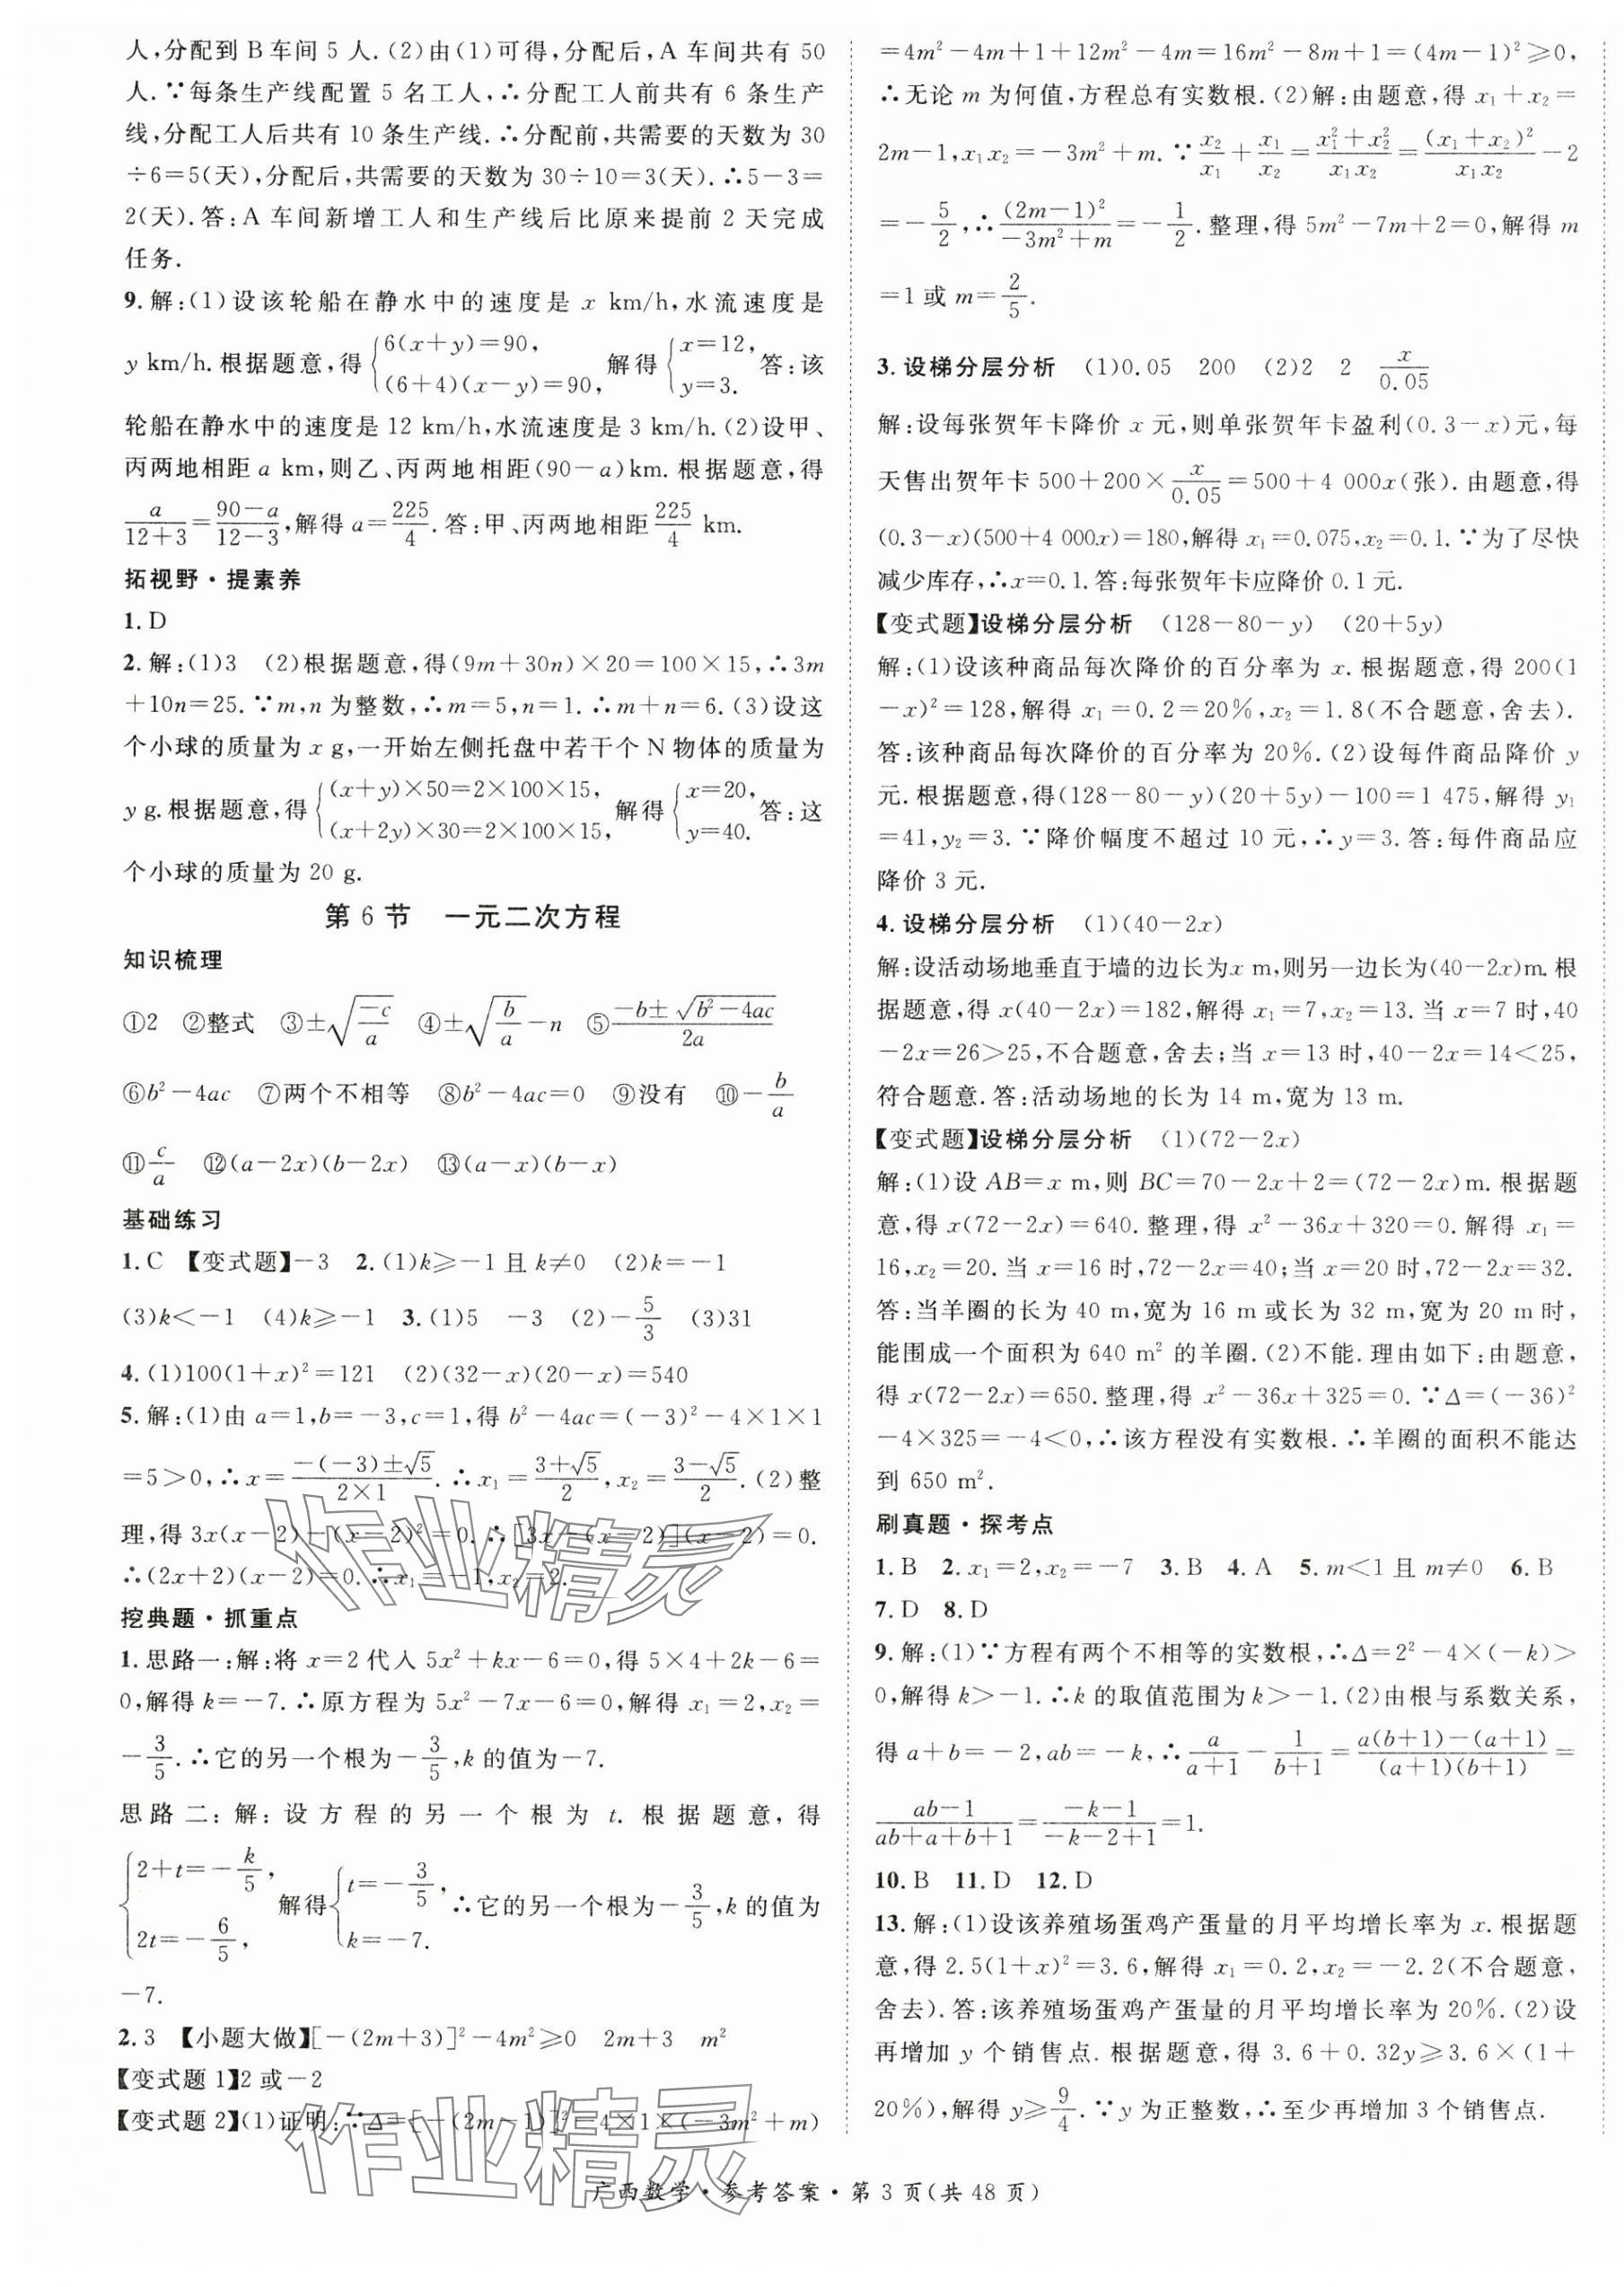 人,分配到 B 车间 5 人.(2)由(1)可得,分配后,A 车间共有 50
人.∵每条生产线配置 5 名工人,∴分配工人前共有 6 条生产
线,分配工人后共有 10 条生产线.∴分配前,共需要的天数为 30
÷6=5(天),分配后,共需要的天数为 30÷10=3(天).∴5-3=
2(天).答:A 车间新增工人和生产线后比原来提前 2 天完成
任务.
9.解:(1)设该轮船在静水中的速度是 x km/h,水流速度是
y km/h.根据题意,得{6(x+y)=90, (6+4)(x-y)=90, 解得{x=12, y=3. 答:该
轮船在静水中的速度是 12 km/h,水流速度是 3 km/h.(2)设甲、
丙两地相距 a km,则乙、丙两地相距(90-a)km.根据题意,得
a/(12+3)=(90-a)/(12-3),解得 a=225/4.答:甲、丙两地相距 225/4 km.
拓视野·提素养
1.D
2.解:(1)3 (2)根据题意,得(9m+30n)×20=100×15,∴3m
+10n=25.∵m,n 为整数,∴m=5,n=1.∴m+n=6.(3)设这
个小球的质量为 x g,一开始左侧托盘中若干个 N 物体的质量为
y g.根据题意,得{(x+y)×50=2×100×15, (x+2y)×30=2×100×15, 解得{x=20, y=40. 答:这
个小球的质量为 20 g.
第 6 节 一元二次方程
知识梳理
①2 ②整式 ③±√(-c/a) ④±√(b/a)-n ⑤(-b±√(b²-4ac))/2a
⑥b²-4ac ⑦两个不相等 ⑧b²-4ac=0 ⑨没有 ⑩-b/a
⑪c/a ⑫(a-2x)(b-2x) ⑬(a-x)(b-x)
基础练习
1.C 【变式题】-3 2.(1)k≥-1 且 k≠0 (2)k=-1
(3)k<-1 (4)k≥-1 3.(1)5 -3 (2)-5/3 (3)31
4.(1)100(1+x)²=121 (2)(32-x)(20-x)=540
5.解:(1)由 a=1,b=-3,c=1,得 b²-4ac=(-3)²-4×1×1
=5>0,∴x=(-(-3)±√5)/(2×1).∴x₁=(3+√5)/2,x₂=(3-√5)/2.(2)整
理,得 3x(x-2)-(x-2)²=0.∴[3x-(x-2)](x-2)=0.
∴(2x+2)(x-2)=0.∴x₁=-1,x₂=2.
挖典题·抓重点
1.思路一:解:将 x=2 代入 5x²+kx-6=0,得 5×4+2k-6=
0,解得 k=-7.∴原方程为 5x²-7x-6=0,解得 x₁=2,x₂=
-3/5.∴它的另一个根为-3/5,k 的值为-7.
思路二:解:设方程的另一个根为 t.根据题意,得
{2+t=-k/5, 2t=-6/5, 解得{t=-3/5, k=-7. ∴它的另一个根为-3/5,k 的值为
-7.
2.3 【小题大做】[-(2m+3)]²-4m²≥0 2m+3 m²
【变式题 1】2 或-2
【变式题 2】(1)证明:∵Δ=[-(2m-1)]²-4×1×(-3m²+m)
=4m²-4m+1+12m²-4m=16m²-8m+1=(4m-1)²≥0,
∴无论 m 为何值,方程总有实数根.(2)解:由题意,得 x₁+x₂=
2m-1,x₁x₂=-3m²+m.∵x₂/x₁+x₁/x₂=(x₁²+x₂²)/x₁x₂=(x₁+x₂)²/x₁x₂-2
=-5/2,∴(2m-1)²/(-3m²+m)=-1/2.整理,得 5m²-7m+2=0,解得 m
=1 或 m=2/5.
3.设梯分层分析 (1)0.05 200 (2)2 2 x/0.05
解:设每张贺年卡降价 x 元,则单张贺年卡盈利(0.3-x)元,每
天售出贺年卡 500+200×x/0.05=500+4 000x(张).由题意,得
(0.3-x)(500+4 000x)=180,解得 x₁=0.075,x₂=0.1.∵为了尽快
减少库存,∴x=0.1.答:每张贺年卡应降价 0.1 元.
【变式题】设梯分层分析 (128-80-y) (20+5y)
解:(1)设该种商品每次降价的百分率为 x.根据题意,得 200(1
-x)²=128,解得 x₁=0.2=20%,x₂=1.8(不合题意,舍去).
答:该种商品每次降价的百分率为 20%.(2)设每件商品降价 y
元.根据题意,得(128-80-y)(20+5y)-100=1 475,解得 y₁
=41,y₂=3.∵降价幅度不超过 10 元,∴y=3.答:每件商品应
降价 3 元.
4.设梯分层分析 (1)(40-2x)
解:设活动场地垂直于墙的边长为x m,则另一边长为(40-2x)m.根
据题意,得 x(40-2x)=182,解得 x₁=7,x₂=13.当 x=7 时,40
-2x=26>25,不合题意,舍去;当 x=13 时,40-2x=14<25,
符合题意.答:活动场地的长为 14 m,宽为 13 m.
【变式题】设梯分层分析 (1)(72-2x)
解:(1)设 AB=x m,则 BC=70-2x+2=(72-2x)m.根据题
意,得 x(72-2x)=640.整理,得 x²-36x+320=0.解得 x₁=
16,x₂=20.当 x=16 时,72-2x=40;当 x=20 时,72-2x=32.
答:当羊圈的长为 40 m,宽为 16 m 或长为 32 m,宽为 20 m 时,
能围成一个面积为 640 m² 的羊圈.(2)不能.理由如下:由题意,
得 x(72-2x)=650.整理,得 x²-36x+325=0.∵Δ=(-36)²
-4×325=-4<0,∴该方程没有实数根.∴羊圈的面积不能达
到 650 m².
刷真题·探考点
1.B 2.x₁=2,x₂=-7 3.B 4.A 5.m<1 且 m≠0 6.B
7.D 8.D
9.解:(1)∵方程有两个不相等的实数根,∴Δ=2²-4×(-k)>
0,解得 k>-1.∴k 的取值范围为 k>-1.(2)由根与系数关系,
得 a+b=-2,ab=-k,∴a/(a+1)-1/(b+1)=(a(b+1)-(a+1))/((a+1)(b+1))=
(ab-1)/(ab+a+b+1)=(-k-1)/(-k-2+1)=1.
10.B 11.D 12.D
13.解:(1)设该养殖场蛋鸡产蛋量的月平均增长率为 x.根据题
意,得 2.5(1+x)²=3.6,解得 x₁=0.2,x₂=-2.2(不合题意,
舍去).答:该养殖场蛋鸡产蛋量的月平均增长率为 20%.(2)设
再增加 y 个销售点.根据题意,得 3.6+0.32y≥3.6×(1+
20%),解得 y≥9/4.∵y 为正整数,∴至少再增加 3 个销售点.
广西数学·参考答案·第 3 页(共 48 页)
作业精灵
作业精灵